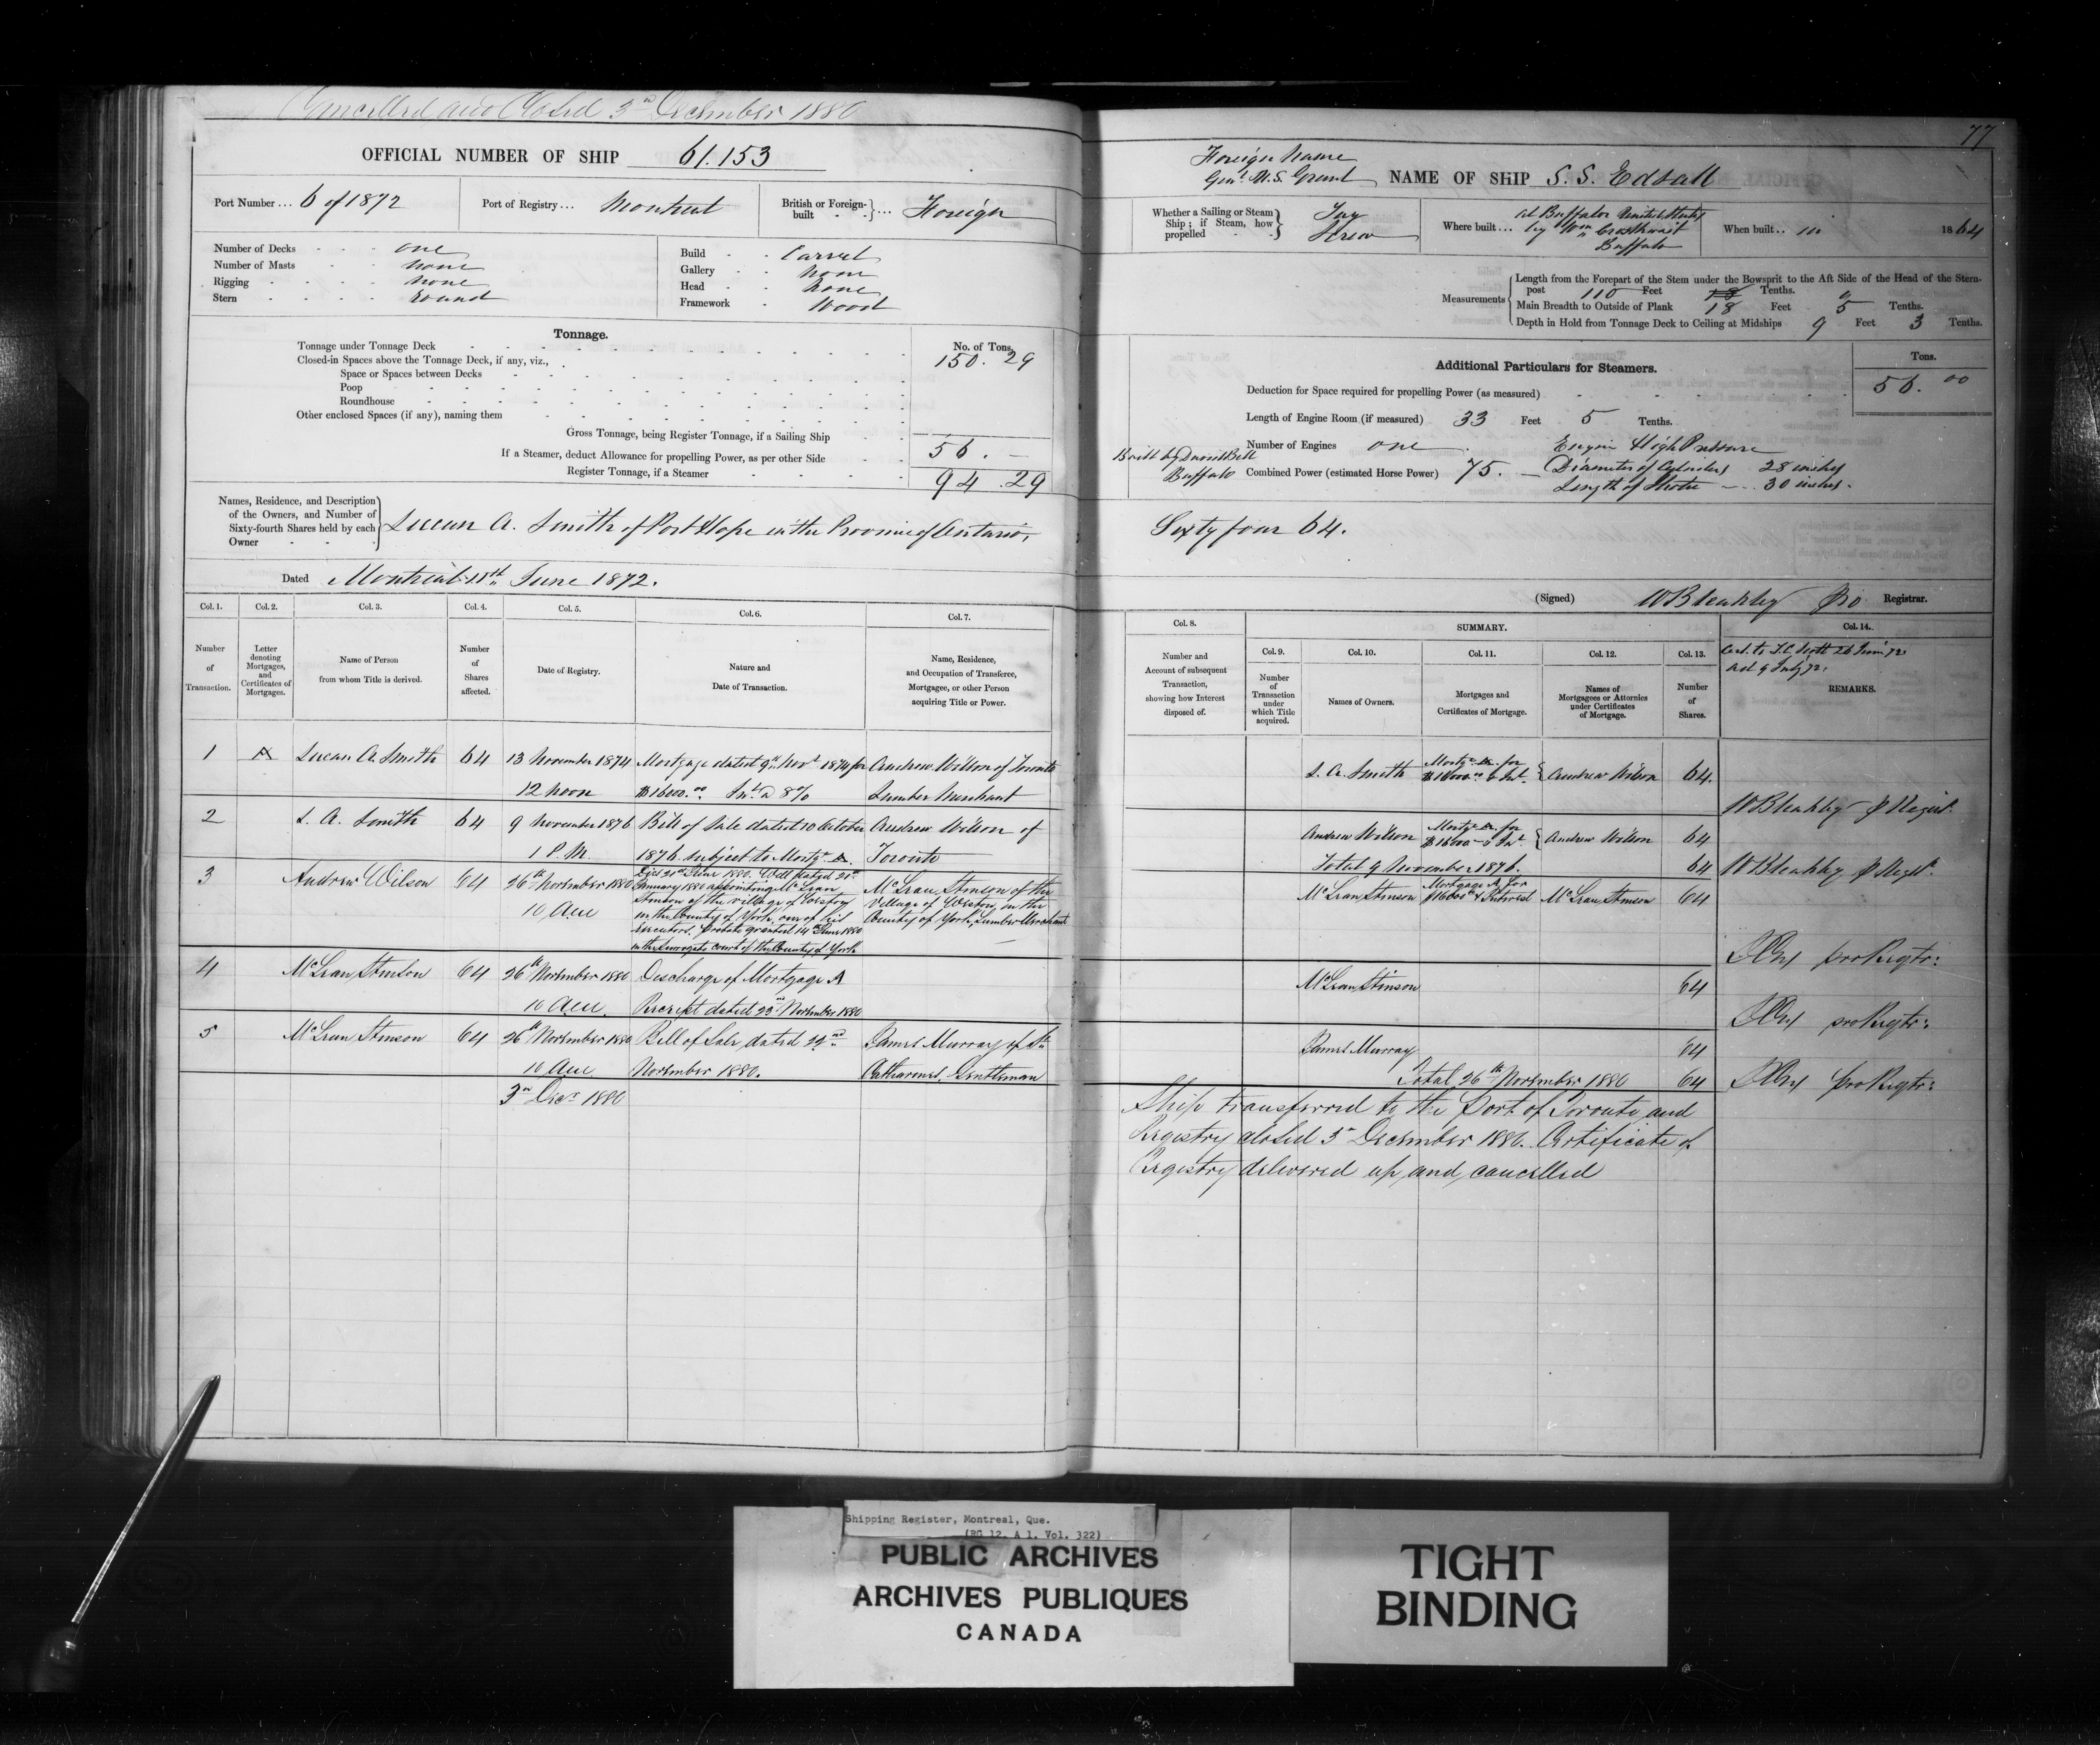 Cancelled and Closed 3rd December 1880
OFFICIAL NUMBER OF SHIP 61.153
Port Number ... 6 of 1872
Port of Registry ... Montreal
British or Foreign-built } ... Foreign
Number of Decks one
Number of Masts none
Rigging none
Stern Round
Build Carvel
Gallery None
Head None
Framework Wood
Tonnage.
No. of Tons.
Tonnage under Tonnage Deck 150.29
Closed-in Spaces above the Tonnage Deck, if any, viz.,
Space or Spaces between Decks
Poop
Roundhouse
Other enclosed Spaces (if any), naming them
Gross Tonnage, being Register Tonnage, if a Sailing Ship
If a Steamer, deduct Allowance for propelling Power, as per other Side 56.—
Register Tonnage, if a Steamer 94.29
Names, Residence, and Description
of the Owners, and Number of
Sixty-fourth Shares held by each
Owner
Lucan A. Smith of Port Hope in the Province of Ontario,
Dated Montreal 18th June 1872.
77
Foreign Name
Genl. U.S. Grant
NAME OF SHIP S. S. Edsall
Whether a Sailing or Steam
Ship; if Steam, how
propelled
Tug
Screw
Where built ... At Buffalo United States
by Wm Crosthwait
Buffalo
When built .. in 1864
Measurements
Length from the Forepart of the Stem under the Bowsprit to the Aft Side of the Head of the Stern-
post 110 Feet Tenths.
Main Breadth to Outside of Plank 18 Feet 5 Tenths.
Depth in Hold from Tonnage Deck to Ceiling at Midships 9 Feet 3 Tenths.
Additional Particulars for Steamers.
Tons.
Deduction for Space required for propelling Power (as measured) 56.00
Length of Engine Room (if measured) 33 Feet 5 Tenths.
Number of Engines one Engine High Pressure
Built by David Bell
Buffalo
Combined Power (estimated Horse Power) 75.— Diameter of Cylinders 28 inches
Length of Stroke — 30 inches.
Sixty four 64.
(Signed) W Bleakley pro Registrar.
Col. 1.
Col. 2.
Col. 3.
Col. 4.
Col. 5.
Col. 6.
Col. 7.
Number
of
Transaction.
Letter
denoting
Mortgages,
and
Certificates of
Mortgages.
Name of Person
from whom Title is derived.
Number
of
Shares
affected.
Date of Registry.
Nature and
Date of Transaction.
Name, Residence,
and Occupation of Transferee,
Mortgagee, or other Person
acquiring Title or Power.
Col. 8.
SUMMARY.
Col. 14.
Number and
Account of subsequent
Transaction,
showing how Interest
disposed of.
Col. 9.
Col. 10.
Col. 11.
Col. 12.
Col. 13.
Number
of
Transaction
under
which Title
acquired.
Names of Owners.
Mortgages and
Certificates of Mortgage.
Names of
Mortgagees or Attornies
under Certificates
of Mortgage.
Number
of
Shares.
REMARKS.
1 A Lucan A. Smith 64 13 November 1874 Mortgage dated 9th Novr 1874 for Andrew Wilson of Toronto
12 noon $16000.00 Int. @ 8% Lumber Merchant
L. A. Smith Mortge A. for
$16000.00 & Int. Andrew Wilson 64.
W Bleakley p Regist.
2 L. A. Smith 64 9 November 1876 Bill of Sale dated 10 October Andrew Wilson of
1 P.M. 1876. subject to Mortge A. Toronto
Andrew Wilson Mortge A. for
$16000 — & Int. Andrew Wilson 64
Total 9 November 1876. 64 W Bleakley p Regst.
3 Andrew Wilson 64 26th November 1880
10 AM
Will dated 21st
January 1880 appointing McLean
Stinson of the village of Weston
in the County of York, one of his
executors. Probate granted 14th June 1880
in the Surrogate Court of the County of York
McLean Stinson of the
Village of Weston, in the
County of York, Lumber Merchant
McLean Stinson Mortgage A for
$16000 & Interest McLean Stinson 64
pro Regtr:
4 McLean Stinson 64 26th November 1880 Discharge of Mortgage A
10 AM. Receipt dated 23rd November 1880
McLean Stinson 64
pro Regtr:
5 McLean Stinson 64 26th November 1880 Bill of Sale, dated 22nd James Murray of St.
10 AM November 1880. Catharines, Gentleman
James Murray 64
Total 26th November 1880 64 pro Regtr:
3rd Decr 1880
Ship transferred to the Port of Toronto and
Registry closed 3rd December 1880. Certificate of
Registry delivered up and cancelled
Shipping Register, Montreal, Que.
(RG 12, A 1, Vol. 322)
PUBLIC ARCHIVES
ARCHIVES PUBLIQUES
CANADA
TIGHT
BINDING